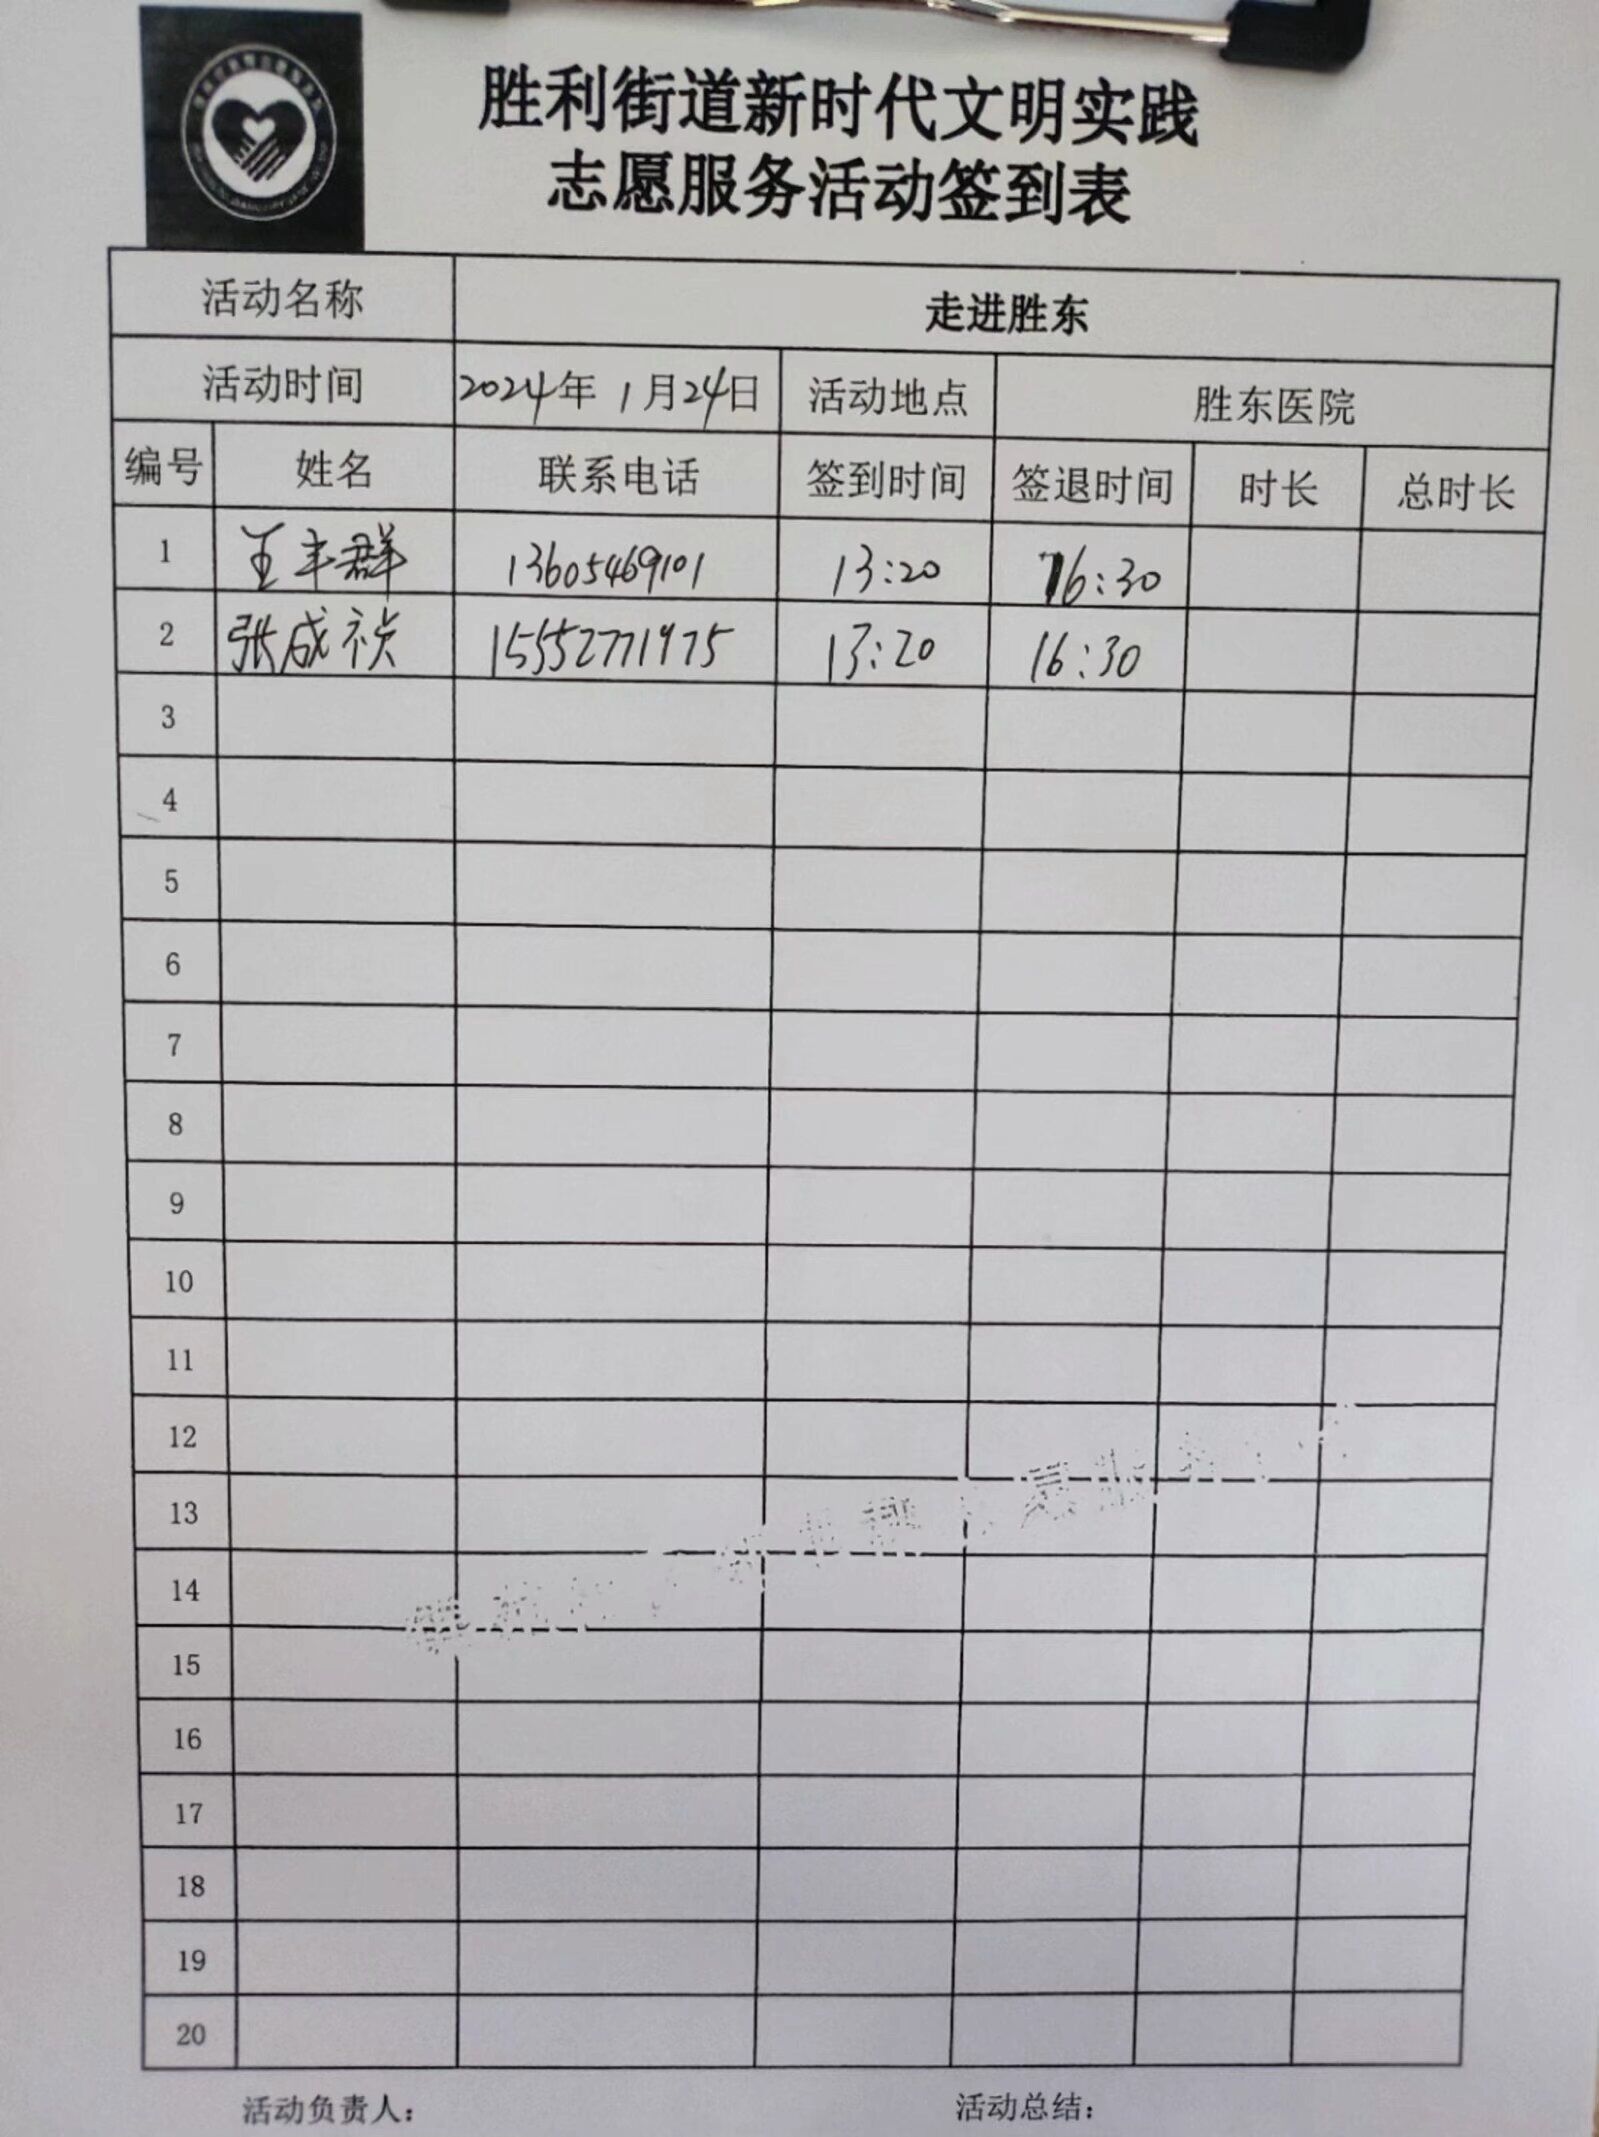 胜利街道新时代文明实践
志愿服务活动签到表
活动名称 走进胜东
活动时间 2024年 1月24日 活动地点 胜东医院
编号 姓名 联系电话 签到时间 签退时间 时长 总时长
1 王丰群 13605469101 13:20 16:30
2 张成祯 15552771975 13:20 16:30
3
4
5
6
7
8
9
10
11
12
13
14
15
16
17
18
19
20
活动负责人： 活动总结：